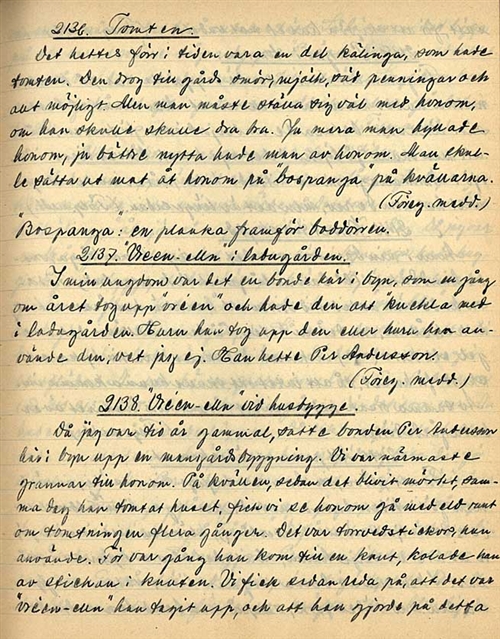 2136. Tomten.
Det hettes förr i tiden vara en del käringa, som hade
tomten. Den drog till gårds smör, mjölk, säd penningar och
allt möjligt. Men man måste ställa sig väl med honom,
om han skulle skulle dra bra. Ju mera man hyllade
honom, ju bättre nytta hade man av honom. Man skul-
le sätta ut mat åt honom på "bospanga" på kvällarna.
(Föreg. medd.)
"Bospanga": en planka framför boddörren.
2137. "Vréen-elln" i ladugården.
I min ungdom var det en bonde här i byn, som en gång
om året tog upp "vréen" och hade den att "kuchla" med
i ladugården. Huru han tog upp den eller huru han an-
vände den, vet jag ej. Han hette Per Andersson.
(Föreg. medd.)
2138. "Vréen-elln" vid husbygge.
Då jag var tio år gammal, satte bonden Per Andersson
här i byn upp en mangårdsbyggning. Vi var närmaste
grannar till honom. På kvällen, sedan det blivit mörkt, sam-
ma dag han tomtat huset, fick vi se honom gå med eld runt
om tomtningen flera gånger. Det var torrvedstickor, han
använde. För var gång han kom till en knut, kolade han
av stickan i knuten. Vi fick sedan reda på, att det var
"vréen-elln" han tagit upp, och att han gjorde på detta